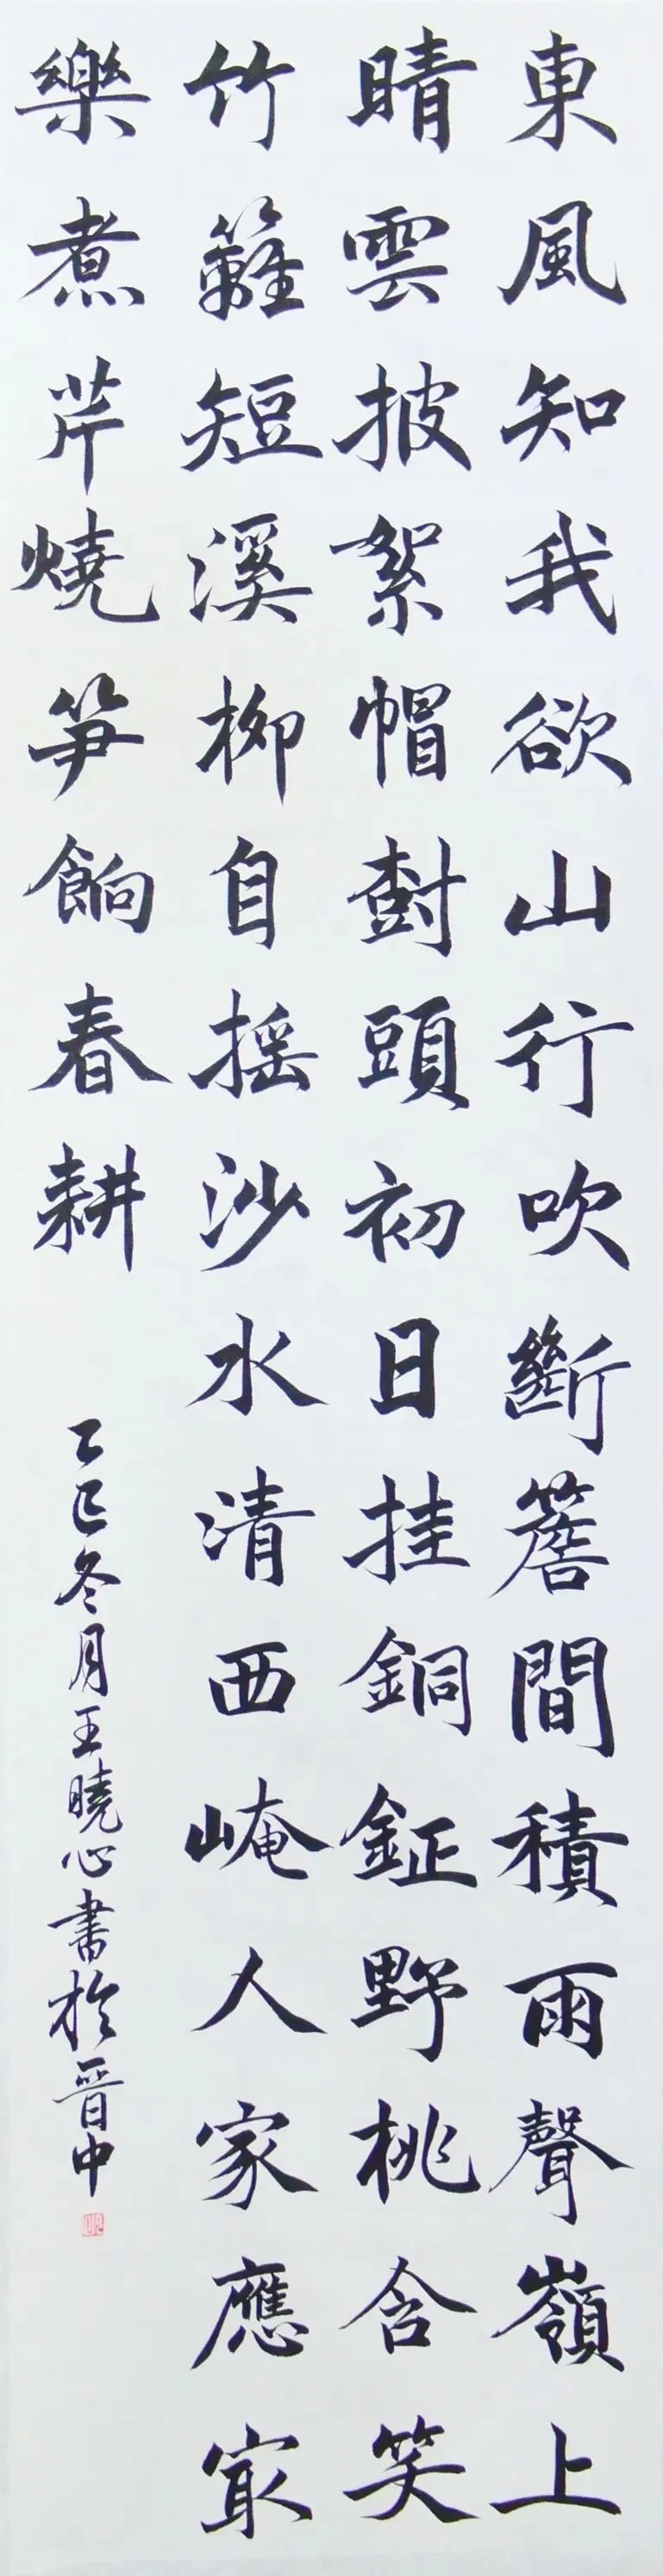 東風知我欲山行吹斷簷間積雨聲嶺上
晴雲披絮帽樹頭初日挂銅鉦野桃含笑
竹籬短溪柳自摇沙水清西崦人家應冣
樂煮芹燒笋餉春耕
乙巳冬月王曉心書於晋中